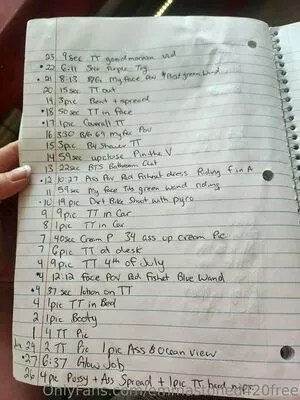 25 9sec TT good mornin vid
22 6:11 Purple Toy
21 8:13 My face POV Green Wand
20 15sec TT out
19 3pic Bent + spread
18 50sec TT in Face
17 1pic Coverall TT
16 3:30 B/G 69 my fac Pov
15 3pic By Shower TT
14 59sec upclose Pin the V
13 22sec BTS Bathroom Chat
12 10:27 Ass Pov Red Fishnet dress Riding F in A
11 59sec My face Tits green wand riding
10 19pic Dirt Bike Shoot with pyro
9 9pic TT in Car
8 1pic TT in Car
7 40sec Cream P 34 ass up cream Pie
7 6pic TT at desk
4 9pic TT 4th of July
4 12:12 Face POV Red Fishnet Blue Wand
4 37sec lotion on TT
4 1pic TT in Bed
2 1pic Booty
1 4 TT Pic
29 2 TT Pic 1pic Ass & Ocean view
27 6:37 Blow Job
26 4pc Pussy + Ass Spread + 1pic TT hard nips